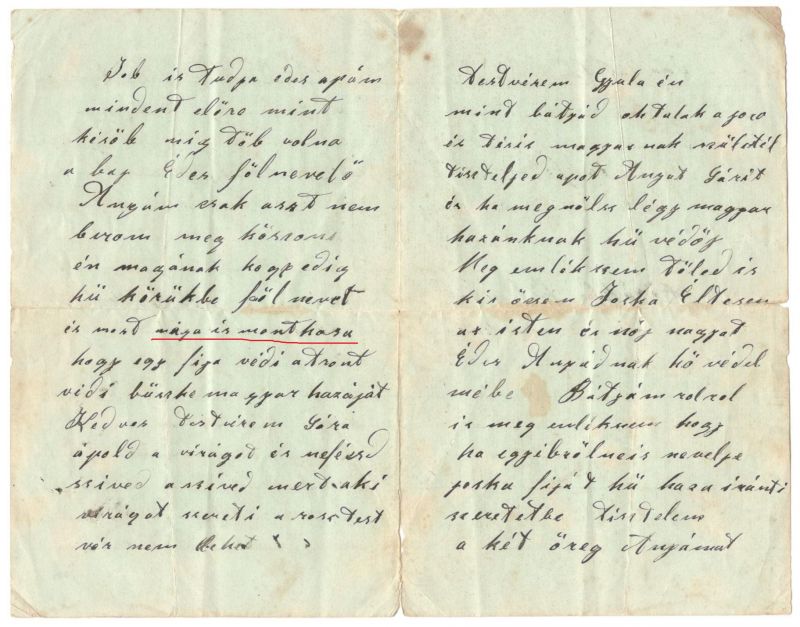 Job is tudja édes apám
mindent előre mint
késöb míg töb volna
a baj Édes fölnevelő
Anyám csak aszt nem
birom meg köszöni
én magának hogy edig
hü körükbe föl nevet
és most mága is mont hasa
hogy egy fija védi a front
vidi büszke magyar hazáját
Kedves testvérem Sára
ápold a virágot és neféssd
szived a szived mert aki
virágot szereti a rosz test
vér nem lehet
testvérem Gyula én
mint bátyád oktalak a joco
és téris magyarnak születél
tiszteljed apot Anyát Sárit
és ha megnölsz légy magyar
hazánknak hü védője
Meg emlékszem tőled is
kis öcsém Joska Éltesen
az isten és nőj nagyot
Édes Anyádnak hö védel
mébe Bátyám rol rol
is meg emléknem hogy
ha egyébrölneis nevelje
joska fiját hü haza iránti
szeretetbe tisztelem
a két öreg Anyámat